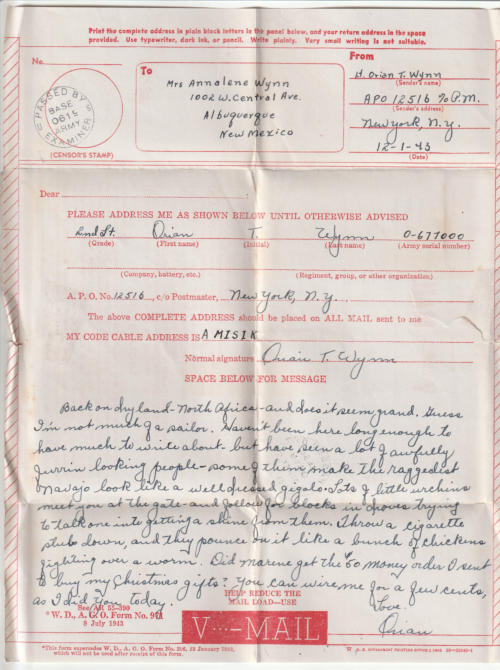 Print the complete address in plain block letters in the panel below, and your return address in the space
provided. Use typewriter, dark ink, or pencil. Write plainly. Very small writing is not suitable.
No.
PASSED BY
BASE
0615
ARMY
EXAMINER
(CENSOR'S STAMP)
To
Mrs Annalene Wynn
1002 W. Central Ave.
Albuquerque
New Mexico
From
Lt. Orian T. Wynn
(Sender's name)
APO 12516 % P.M.
(Sender's address)
New York, N.Y.
12-1-43
(Date)
Dear
PLEASE ADDRESS ME AS SHOWN BELOW UNTIL OTHERWISE ADVISED
2nd Lt. Orian T. Wynn O-677000
(Grade) (First name) (Initial) (Last name) (Army serial number)
(Company, battery, etc.) (Regiment, group, or other organization)
A. P. O. No. 12516, c/o Postmaster, New York, N.Y.
The above COMPLETE ADDRESS should be placed on ALL MAIL sent to me
MY CODE CABLE ADDRESS IS AMISIK
Normal signature Orian T. Wynn
SPACE BELOW FOR MESSAGE
Back on dry land-North Africa-and does it seem grand. Guess
I'm not much of a sailor. Haven't been here long enough to
have much to write about but have seen a lot of awfully
furrin looking people-some of them make the raggedest
Navajo look like a well dressed gigolo. Lots of little urchins
meet you at the gate and follow for blocks in droves trying
to talk one into getting a shine from them. Throw a cigarette
stub down, and they pounce on it like a bunch of chickens
fighting over a worm. Did marene get the 60 money order I sent
to buy my Christmas gifts? You can wire me for a few cents,
as I did you today. Love.
Orian
HELP REDUCE THE
MAIL LOAD—USE
See AR 55-390
*W. D., A. G. O. Form No. 971
8 July 1943
V···—MAIL
*This form supersedes W. D., A. G. O. Form No. 206, 22 January 1943,
which will not be used after receipt of this form.
U. S. GOVERNMENT PRINTING OFFICE